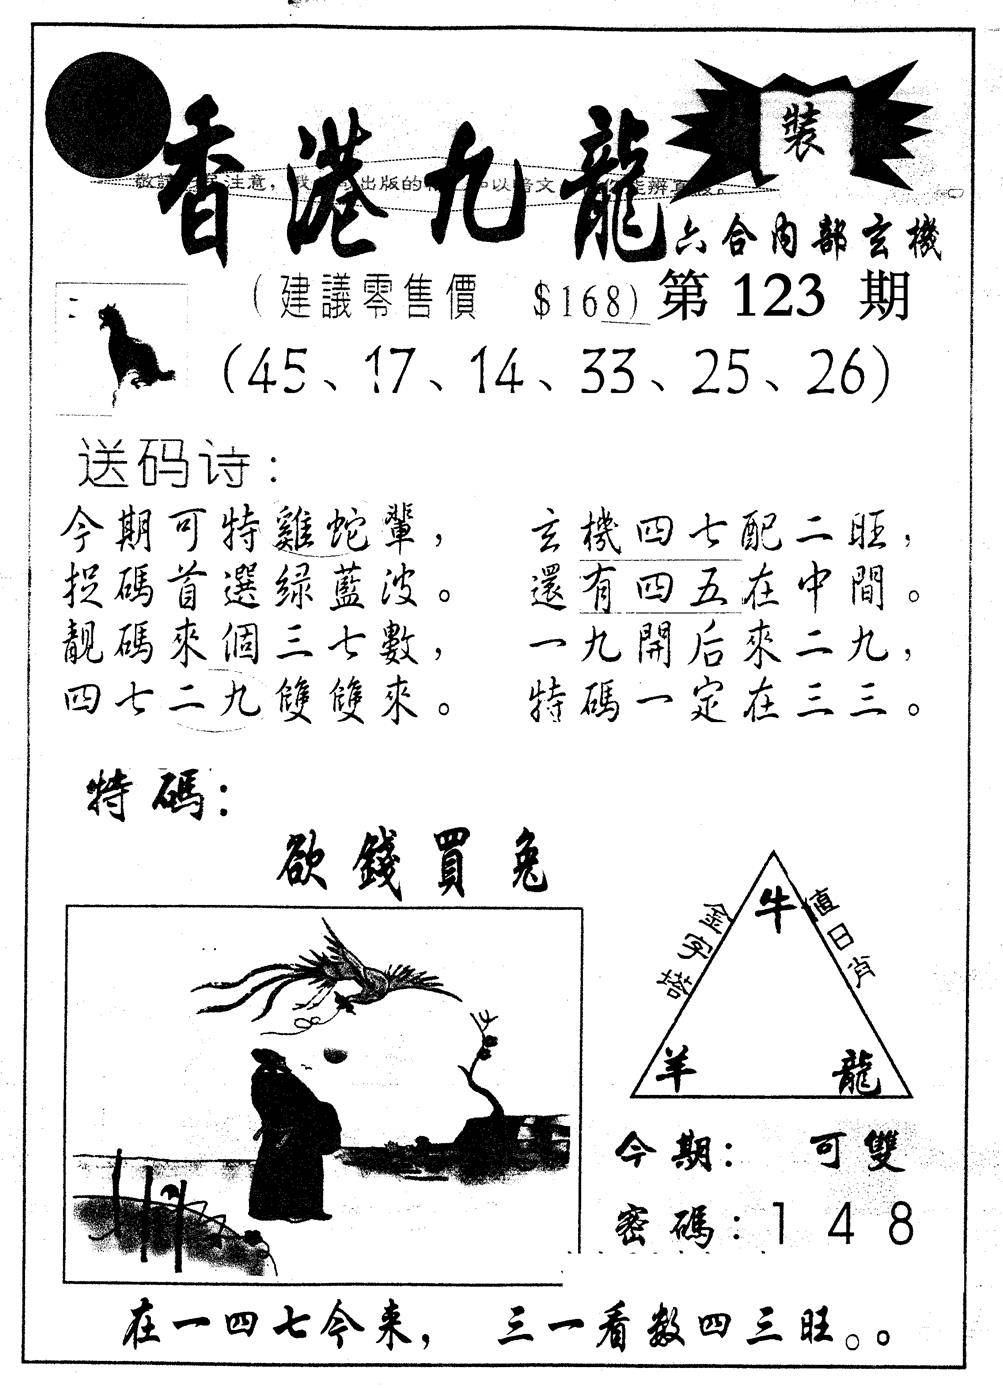 裝
香港九龍
六合内部玄機
(建議零售價 $168) 第 123 期
(45、17、14、33、25、26)
送码诗:
今期可特雞蛇輩, 玄機四七配二旺,
捉碼首選绿藍波。 還有四五在中間。
靚碼來個三七數, 一九開后來二九,
四七二九雙雙來。 特碼一定在三三。
特碼:
欲錢買兔
金字塔 牛 值日肖
羊 龍
今期: 可雙
密碼: 1 4 8
在一四七今来, 三一看数四三旺。。